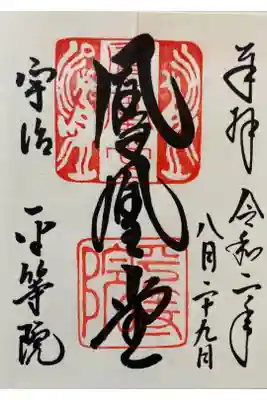 奉拝
令和二年
八月二十九日
鳳凰堂
宇治 平等院